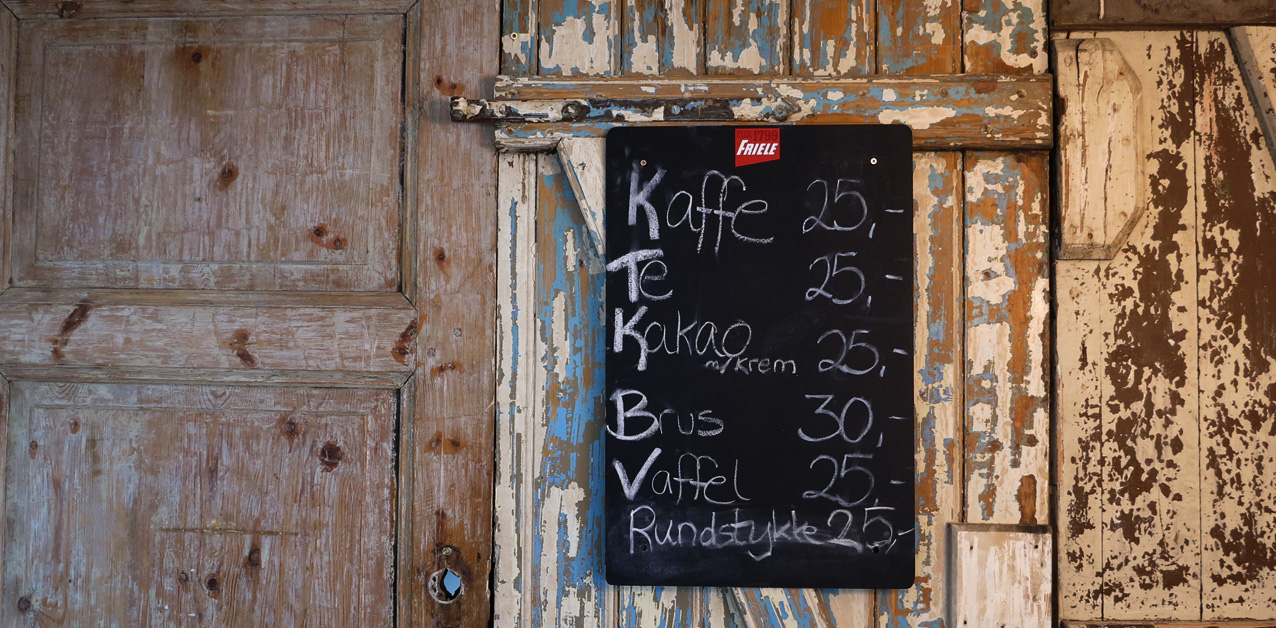 1799
FRIELE
Kaffe 25,-
Te 25,-
Kakao 25,-
m/krem
Brus 30,-
Vaffel 25,-
Rundstykke 25,-